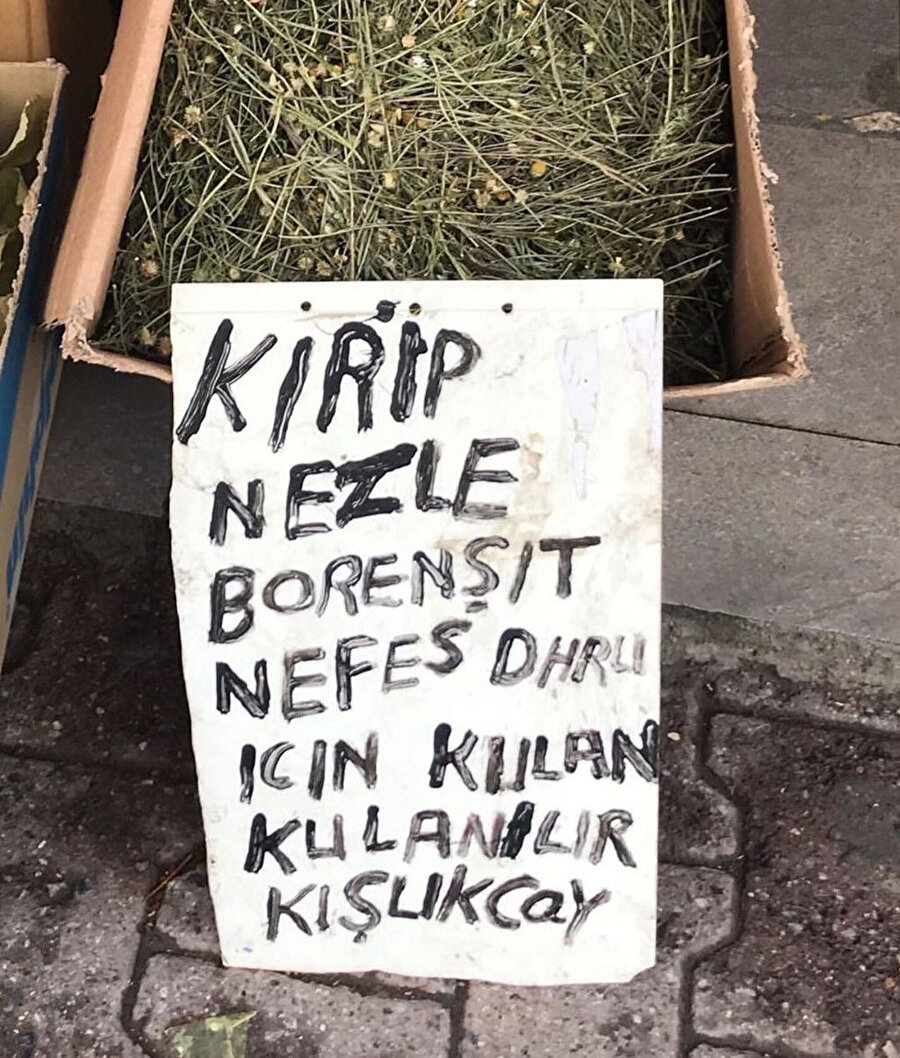 KIRİP
NEZLE
BORENŞIT
NEFES DARLI
ICIN KULAN
KULANILIR
KIŞLIKCAY